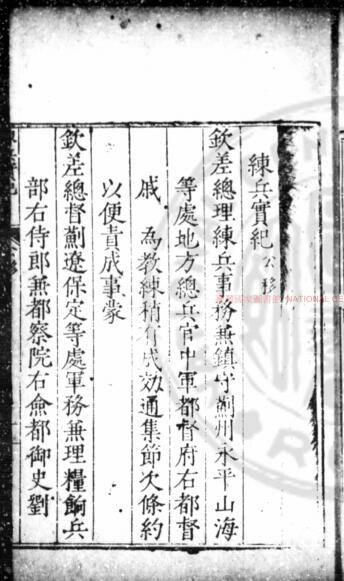 練兵實紀 公移
欽差總理練兵事務兼鎮守薊州永平山海
等處地方總兵官中軍都督府右都督
戚 為教練稍有成效通集節次條約
以便責成事蒙
欽差總督薊遼保定等處軍務兼理糧餉兵
部右侍郎兼都察院右僉都御史劉
NATIONAL CE